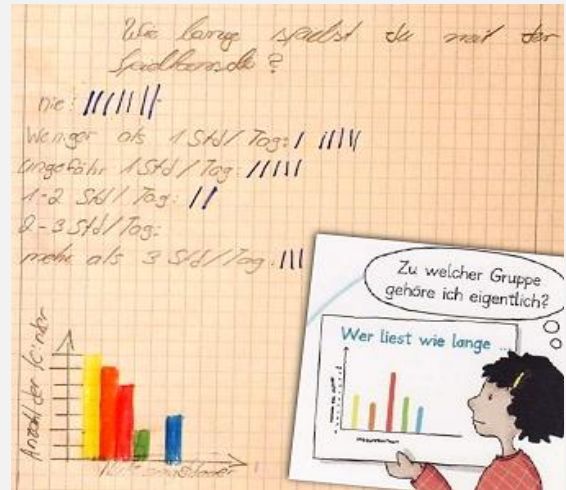 Wie lange spielst du mit der
Spielkonsole?
nie:
weniger als 1 Std/Tag:
ungefähr 1 Std/Tag:
1-2 Std/Tag:
2-3 Std/Tag:
mehr als 3 Std/Tag:
Anzahl der Kinder
Zu welcher Gruppe
gehöre ich eigentlich?
Wer liest wie lange ...